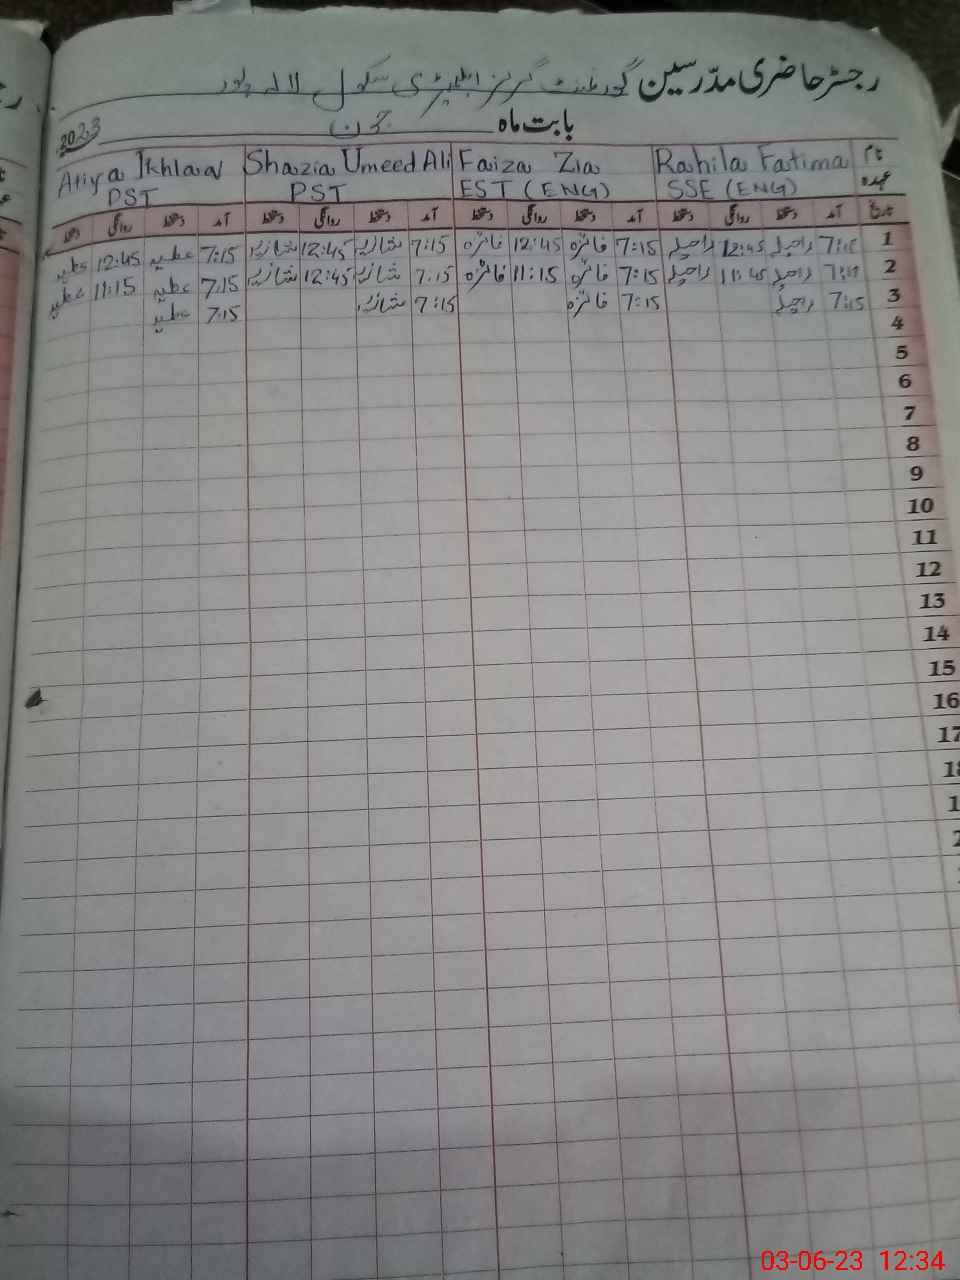 رجسٹر حاضری مدّرسین گورنمنٹ گرلز ایلیمنٹری سکول لالہ پور
بابت ماہ جون 2023
نام Rahila Fatima Faiza Zia Shazia Umeed Ali Atiya Ikhlaq
عہدہ SSE (ENG) EST (ENG) PST PST
تاریخ آمد دستخط روانگی دستخط آمد دستخط روانگی دستخط آمد دستخط روانگی دستخط آمد دستخط روانگی دستخط
1 7:15 راحیلہ 12:45 راحیلہ 7:15 فائزہ 12:45 فائزہ 7:15 شازیہ 12:45 شازیہ 7:15 عطیہ 12:45 عطیہ
2 7:15 راحیلہ 11:45 راحیلہ 7:15 فائزہ 11:15 فائزہ 7:15 شازیہ 12:45 شازیہ 7:15 عطیہ 11:15 عطیہ
3 7:15 راحیلہ 7:15 فائزہ 7:15 شازیہ 7:15 عطیہ
4
5
6
7
8
9
10
11
12
13
14
15
16
17
03-06-23 12:34